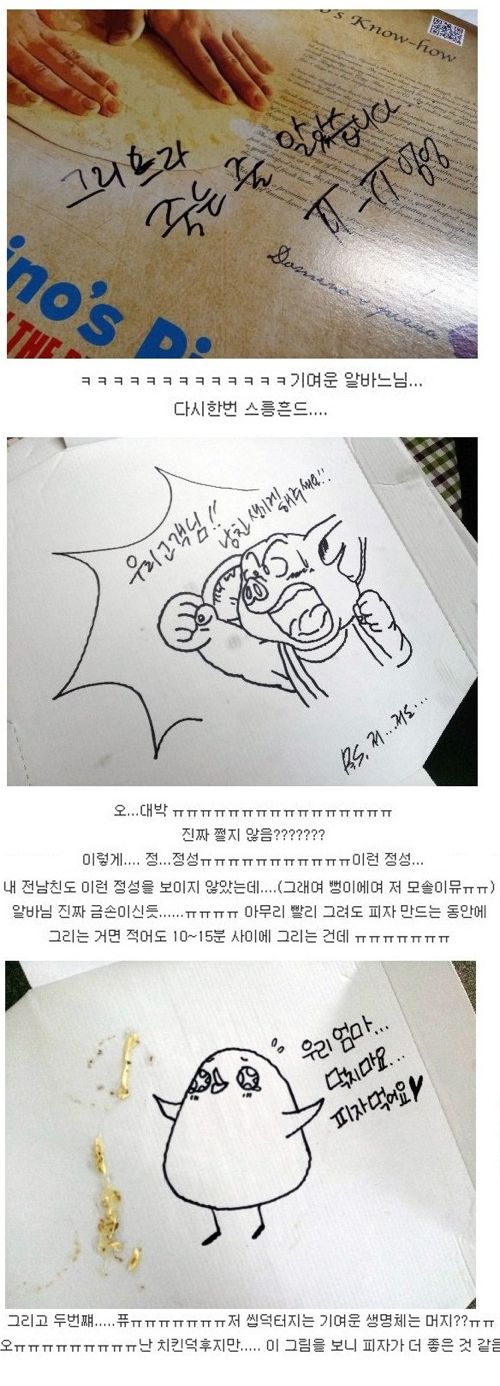 's Know-how
그리흐라
죽는 줄 알았습니다
ㅠ_ㅠ 엉엉
Domino's pizza
ino's Pi
THE
ㅋㅋㅋㅋㅋㅋㅋㅋㅋㅋㅋㅋㅋ기여운 알바느님...
다시한번 스릉흔드....
우리고객님!!
남친생기게 해주세요!!
P.S. 저...저도...
오...대박 ㅠㅠㅠㅠㅠㅠㅠㅠㅠㅠㅠㅠㅠㅠㅠㅠ
진짜 쩔지 않음???????
이렇게.... 정...정성ㅠㅠㅠㅠㅠㅠㅠㅠㅠㅠㅠ이런 정성...
내 전남친도 이런 정성을 보이지 않았는데....(그래여 뻥이에여 저 모솔이뮤ㅠㅠ)
알바님 진짜 금손이신듯......ㅠㅠㅠㅠ 아무리 빨리 그려도 피자 만드는 동안에
그리는 거면 적어도 10~15분 사이에 그리는 건데 ㅠㅠㅠㅠㅠㅠㅠ
우리 엄마...
닥치마요...
피자먹어요♥
그리고 두번째.....퓨ㅠㅠㅠㅠㅠㅠ저 씹덕터지는 기여운 생명체는 머지??ㅠㅠ
오ㅠㅠㅠㅠㅠㅠㅠㅠㅠ난 치킨덕후지만..... 이 그림을 보니 피자가 더 좋은 것 같음